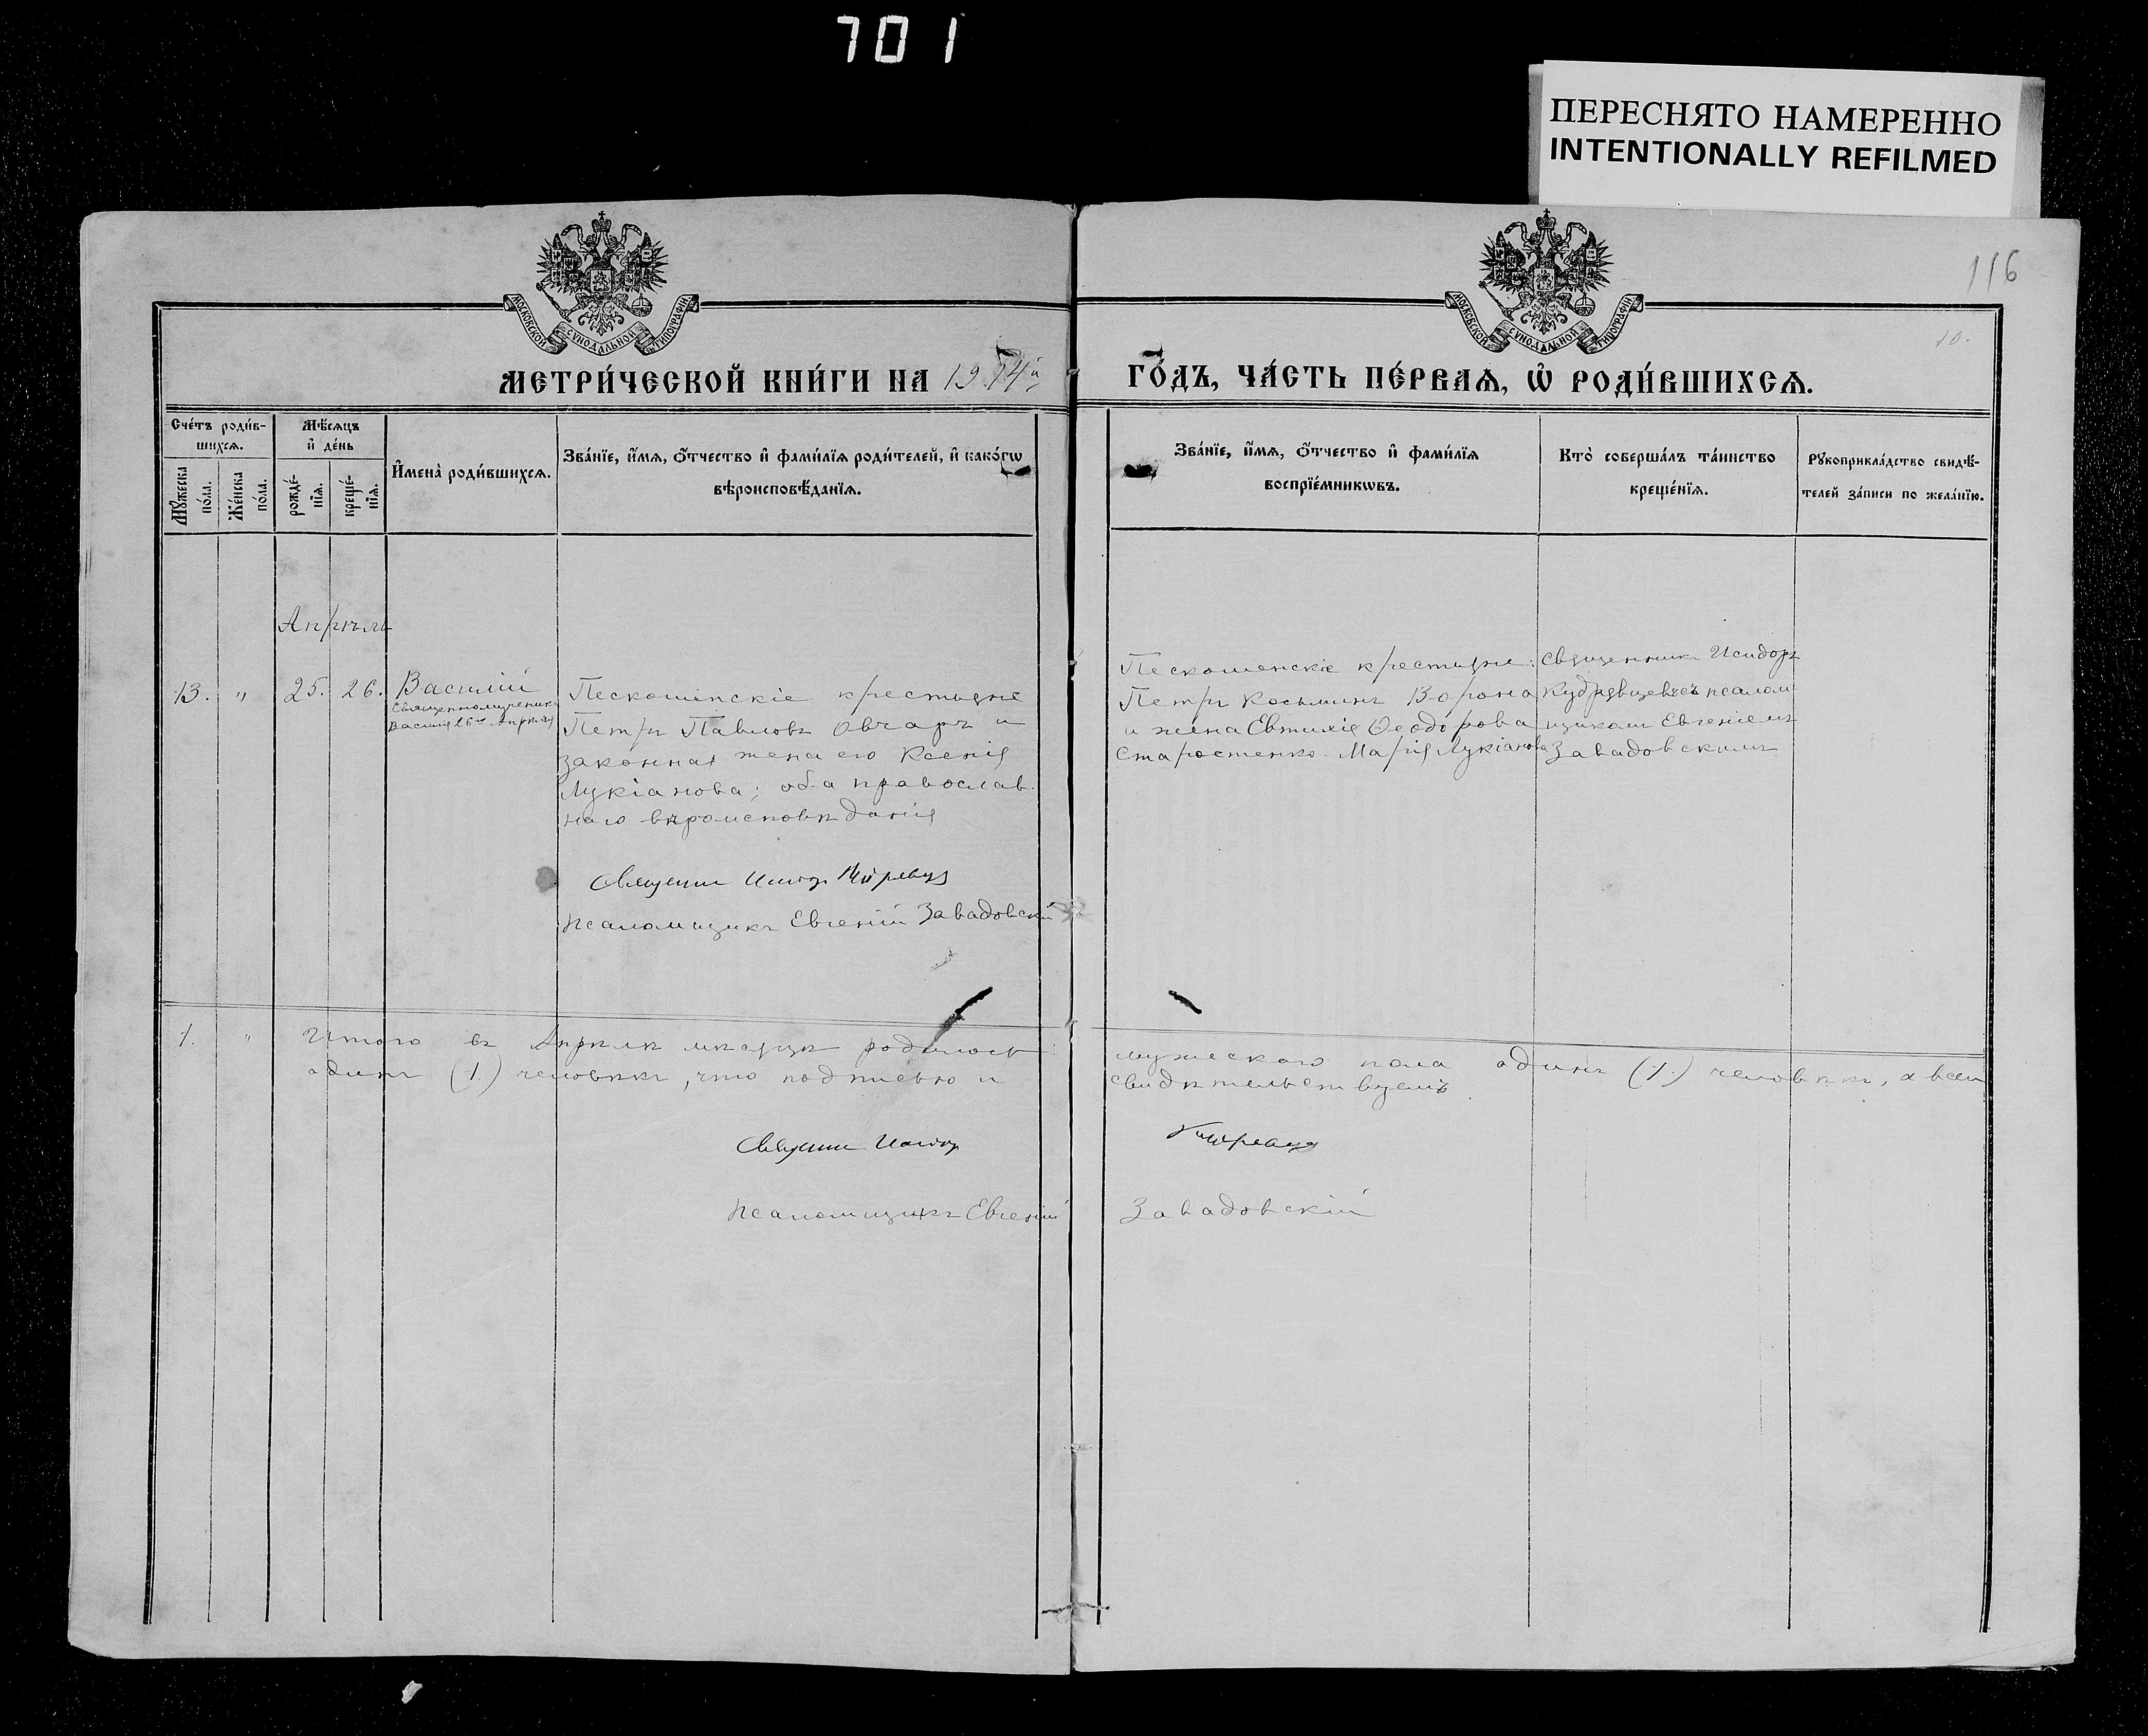 701
ПЕРЕСНЯТО НАМЕРЕННО
INTENTIONALLY REFILMED
116
10.
МОСКОВСКОЙ СѴНОДАЛЬНОЙ ТИПОГРАФІИ
МОСКОВСКОЙ СѴНОДАЛЬНОЙ ТИПОГРАФІИ
МЕТРИ́ЧЕСКОЙ КНИ́ГИ НА 1914й
ГО́ДЪ, ЧА́СТЬ ПЕ́РВАѦ, Ѡ҆ РОДИ́ВШИХСѦ.
Сче́тъ роди́в-
шихсѧ.
Мꙋ́жеска по́ла.
Же́нска по́ла.
Мѣ́сѧцъ
и҆ де́нь
рожде́-нїѧ.
креще́-нїѧ.
И҆мена̀ роди́вшихсѧ.
Зва́нїе, и҆́мѧ, ѻ҆́тчество и҆ фами́лїѧ роди́телей, и҆ како́гѡ
вѣроисповѣ́данїѧ.
Зва́нїе, и҆́мѧ, ѻ҆́тчество и҆ фами́лїѧ
воспрїе́мникѡвъ.
Кто̀ соверша́лъ та́инство
креще́нїѧ.
Рꙋкоприкла́дство свидѣ́-
телей за́писи по жела́нїю.
Апрѣль
13. " 25. 26. Василій
Священномученика
Василія 26го Апрѣля
Пескошинскіе крестьяне
Петръ Павловъ Овчаръ и
законная жена его Ксенія
Лукіанова; оба православ-
наго вѣроисповѣданія
Священникъ Исидоръ
Псаломщикъ Евгеній Завадовскій
крестьяне:
Петръ Косьминъ Ворона
и жена Евтихія Ѳеодорова
Старостенко Марія Лукіанова
Священникъ Исидоръ
съ псалом
щикомъ Евгеніемъ
Завадовскимъ
1. " Итого въ Апрѣлѣ мѣсяцѣ родилось: мужескаго пола одинъ (1.) человѣкъ, а всего
одинъ (1.) человѣкъ, что подписью и свидѣтельствуемъ
Священникъ Исидоръ
Псаломщикъ Евгеній Завадовскій